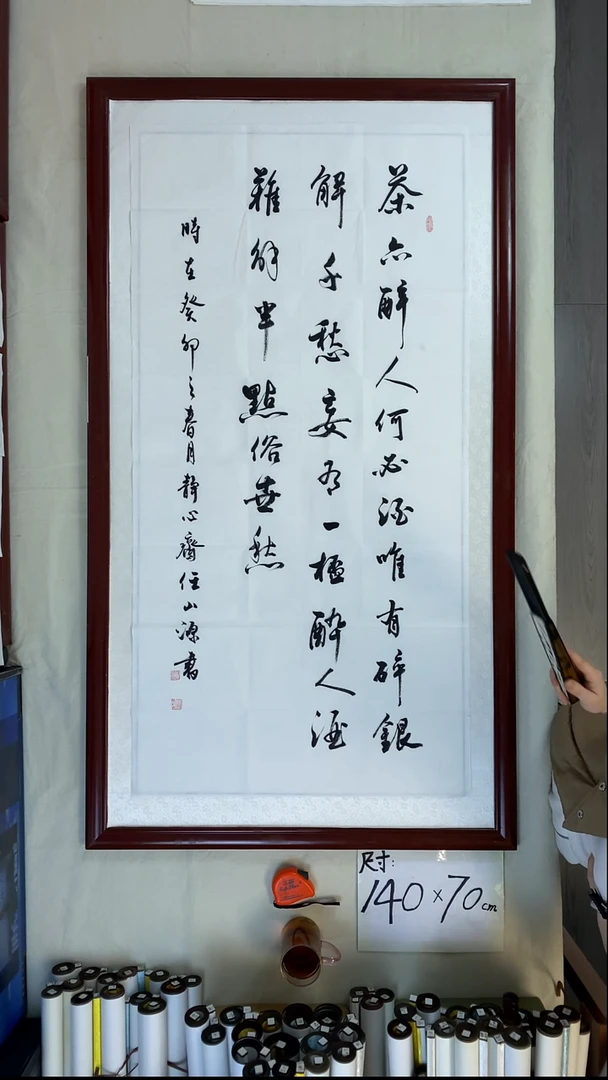 茶亦醉人何必酒唯有碎銀
解千愁妄一醉人酒
難解半點俗世愁
時在癸卯之春月靜心齋任山源書
尺寸:
140×70cm